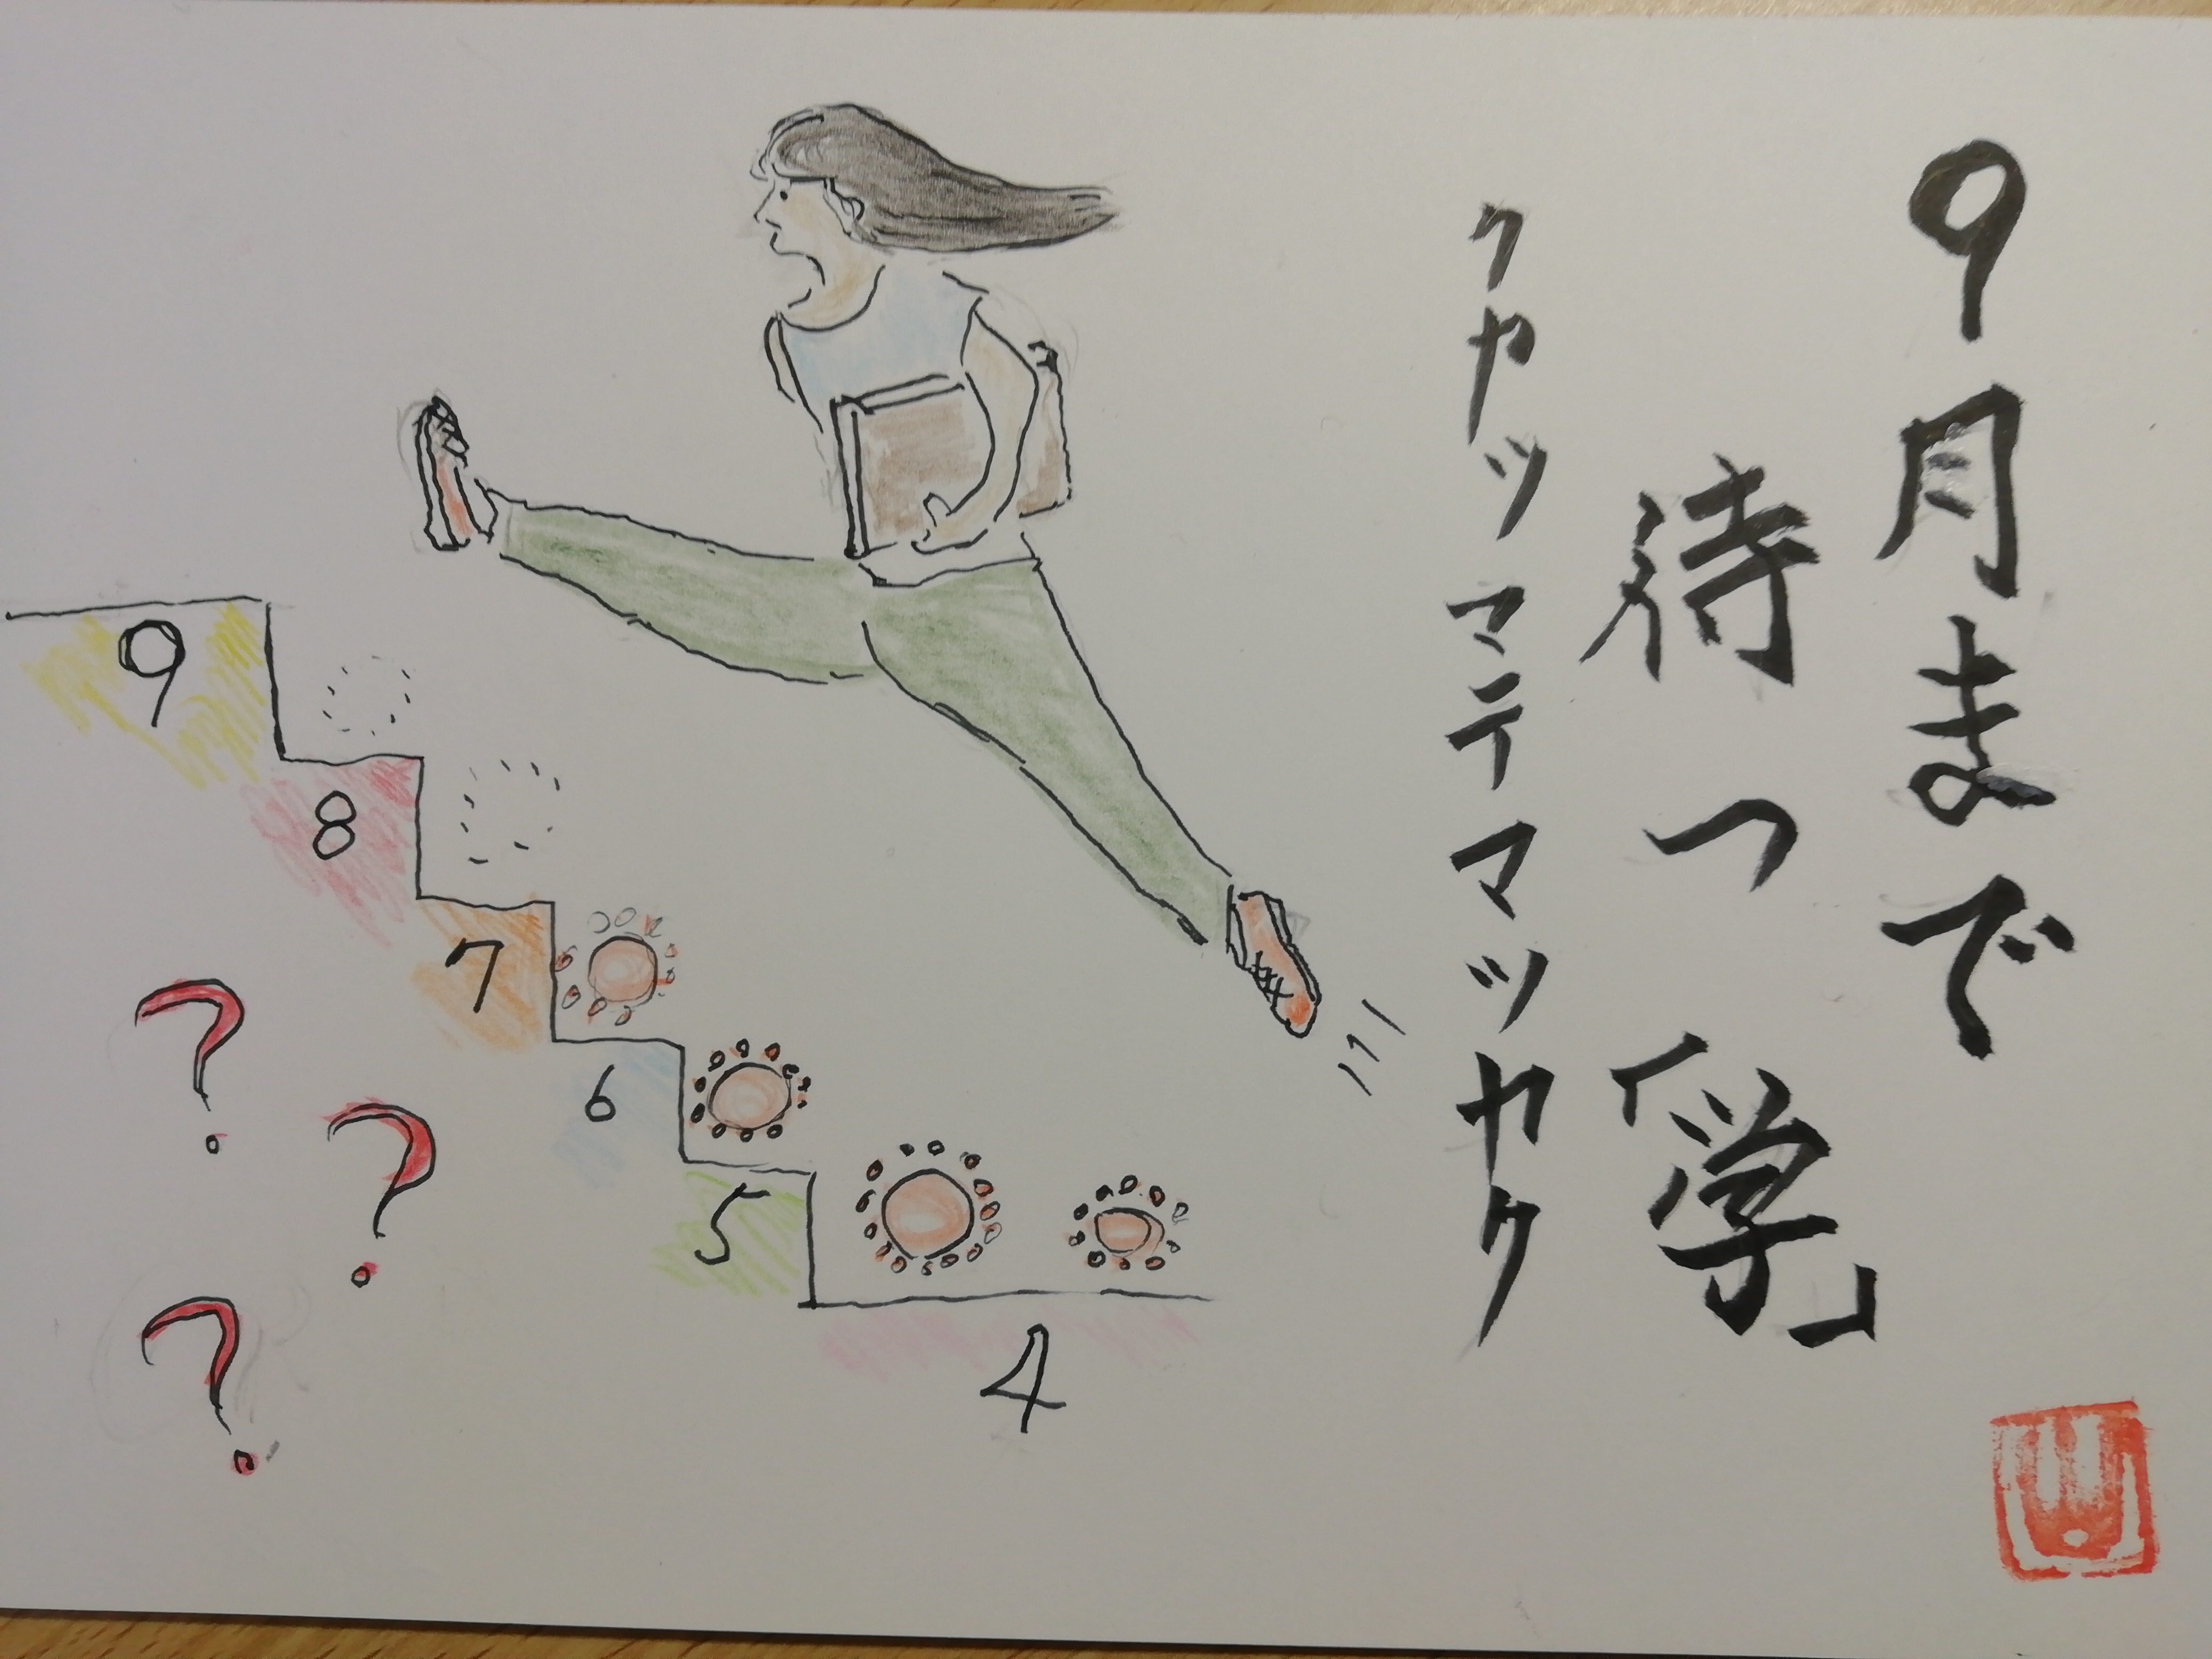 9月まで
待つ「学」
クカツマテマツカク
9
8
7
6
5
4
?
?
?